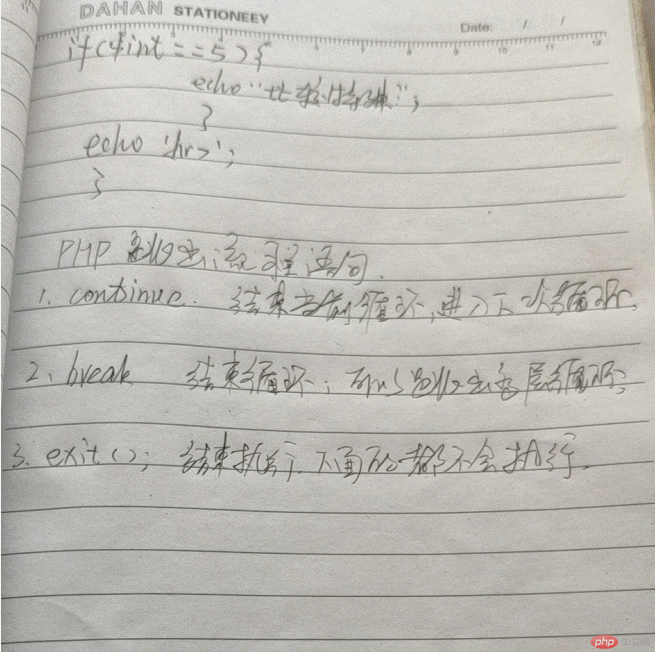 DAHAN STATIONEEY
Date: / /
6 7 8 9 10 11 12
if($int==5){
echo "比较特殊";
}
echo 'hr>';
}
PHP 跳出流程语句.
1. continue: 结束当前循环,进入下一次循环.
2、break 结束循环; 可以跳出多层循环;
3. exit(); 结束执行,下面的都不会执行.
php 中文网